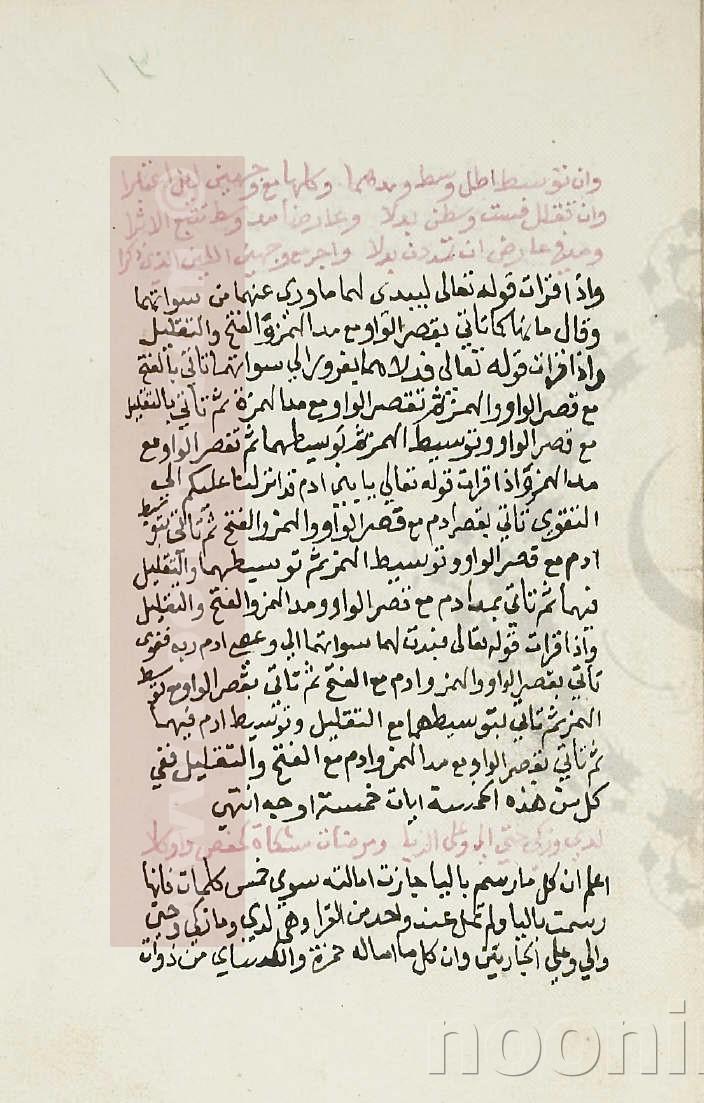 وان توسيط اطل وسط ومدهما وكلها مع وجهين
وان تقلل فست وطن بدلا وعارضا مد وسط تتبع الاثرا
ومد في عارض ان تمددن بدلا واجر مع وجهين اللين الذي ذكرا
واذا قرات قوله تعالى ليبدي لهما ماوري عنهما من سواتهما
وقال مانهاكما تاتي بقصر الواو مع مد الهمزة والفتح والتقليل
واذا قرات قوله تعالى فدلاهما بغرور الي سواتهما تاتي بالفتح
مع قصر الواو والهمزة ثم تقصر الواو مع مد الهمزة ثم تاتي بالتقليل
مع قصر الواو وتوسيط الهمزة ثم توسيطهما ثم تقصر الواو مع
مد الهمزة واذا قرات قوله تعالي يا بني ادم قد انزلنا عليكم الي
التقوى تاتي بقصر ادم مع قصر الواو والهمز والفتح ثم تاتي بتوسيط
ادم مع قصر الواو وتوسيط الهمز ثم توسيطهما والتقليل
فيهما ثم تاتي بمد ادم مع قصر الواو ومد الهمز والفتح والتقليل
واذا قرات قوله تعالى فبدت لهما سواتهما الي وعصى ادم ربه فغوى
تاتي بقصر الواو والهمز وادم مع الفتح ثم تاتي بقصر الواو مع توسيط
الهمز ثم تاتي بتوسيطهما مع التقليل وتوسيط ادم فيهما
ثم تاتي بقصر الواو مع مد الهمز وادم مع الفتح والتقليل ففي
كل من هذه الخمسة ايات خمسة اوجه انتهي
لدي وزكى حتي الي وعلى الربا ومرضات مشكاة لحفص واو كلا
اعلم ان كل ما رسم باليا جازت امالته سوي خمس كلمات فانها
رسمت باليا ولم تمل عند واحد من القرا وهي لدي وما زكي وحتي
والي وعلي الجارتين وان كل ما اماله حمزة والكسائي من ذوات
nooni